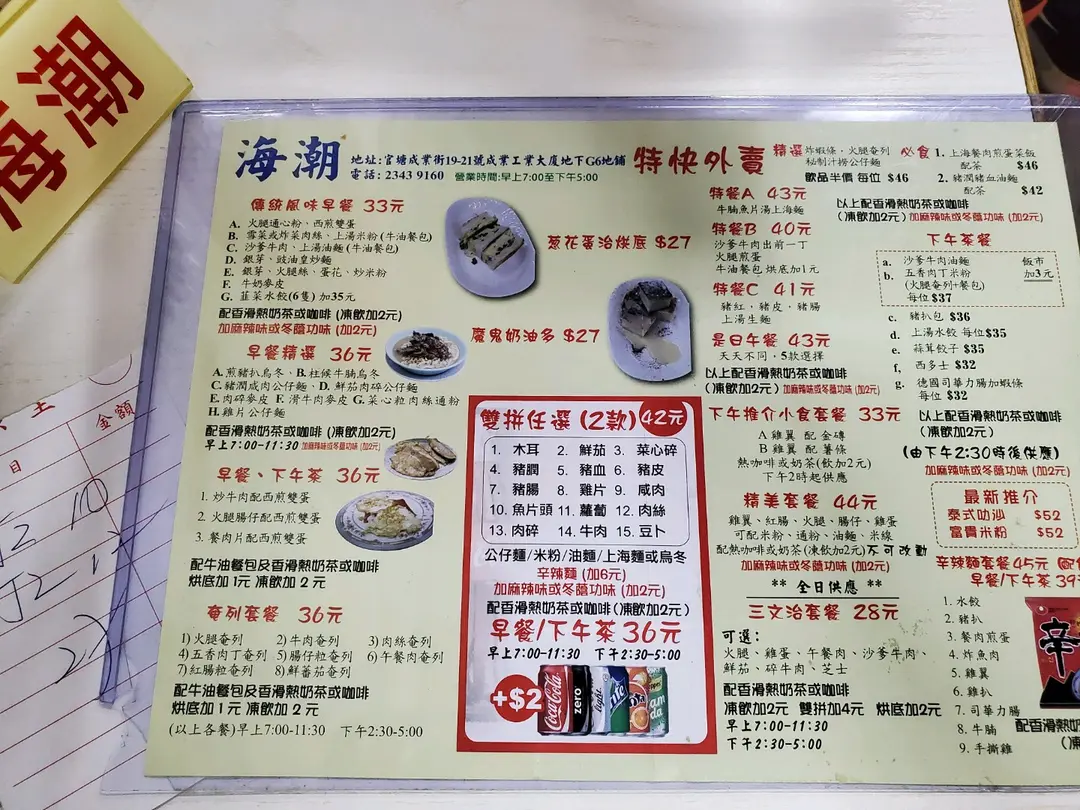 海潮
金額
海潮
地址:官塘成業街19-21號成業工業大廈地下G6地舖
電話: 2343 9160 營業時間:早上7:00至下午5:00
傳統風味早餐 33元
A. 火腿通心粉、西煎雙蛋
B. 雪菜或炸菜肉絲、上湯米粉 (牛油餐包)
C. 沙爹牛肉、上湯油麵 (牛油餐包)
D. 銀芽、豉油皇炒麵
E. 銀芽、火腿絲、蛋花、炒米粉
F. 牛奶麥皮
G. 韮菜水餃(6隻) 加35元
配香滑熱奶茶或咖啡 (凍飲加2元)
加麻辣味或冬蔭功味 (加2元)
早餐精選 36元
A.煎豬扒烏冬、B.柱候牛腩烏冬
C.豬潤咸肉公仔麵、D. 鮮茄肉碎公仔麵
E.肉碎麥皮 F. 滑牛肉麥皮 G.菜心粒肉絲通粉
H.雞片公仔麵
配香滑熱奶茶或咖啡 (凍飲加2元)
早上7:00-11:30 加麻辣味或冬蔭功味 (加2元)
早餐、下午茶 36元
1. 炒牛肉配西煎雙蛋
2. 火腿腸仔配西煎雙蛋
3. 餐肉片配西煎雙蛋
配牛油餐包及香滑熱奶茶或咖啡
烘底加 1元 凍飲加 2 元
奄列套餐 36元
1)火腿奄列 2)牛肉奄列 3)肉絲奄列
4)五香肉丁奄列 5)腸仔粒奄列 6)午餐肉奄列
7)紅腸粒奄列 8)鮮蕃茄奄列
配牛油餐包及香滑熱奶茶或咖啡
烘底加 1 元 凍飲加 2 元
(以上各餐)早上7:00-11:30 下午2:30-5:00
葱花蛋治烘底 $27
魔鬼奶油多 $27
雙拼任選 (2款) 42元
1. 木耳 2. 鮮茄 3. 菜心碎
4. 豬潤 5. 豬血 6. 豬皮
7. 豬腸 8. 雞片 9. 咸肉
10. 魚片頭 11. 蘿蔔 12. 肉絲
13. 肉碎 14. 牛肉 15. 豆卜
公仔麵/米粉/油麵/上海麵或烏冬
辛辣麵 (加6元)
加麻辣味或冬蔭功味 (加2元)
配香滑熱奶茶或咖啡(凍飲加2元)
早餐/下午茶 36元
早上7:00-11:30 下午2:30-5:00
+$2
Coca-Cola
zero
light
特快外賣
精選 炸蝦條、火腿奄列
秘制汁撈公仔麵
飲品半價 每位 $46
必食 1. 上海餐肉煎蛋菜飯
配茶 $46
2. 豬潤豬血油麵
配茶 $42
特餐A 43元
牛腩魚片湯上海麵
特餐B 40元
沙爹牛肉出前一丁
火腿煎蛋
牛油餐包 烘底加1元
特餐C 41元
豬紅、豬皮、豬腸
上湯生麵
是日午餐 43元
天天不同,5款選擇
以上配香滑熱奶茶或咖啡
(凍飲加2元) 加麻辣味或冬蔭功味 (加2元)
下午推介小食套餐 33元
A 雞翼 配 金磚
B 雞翼 配 薯條
熱咖啡或奶茶(飲加2元)
下午2時起供應
精美套餐 44元
雞翼、紅腸、火腿、腸仔、雞蛋
可配米粉、通粉、油麵、米線
配熱咖啡或奶茶(凍飲加2元)不可改動
加麻辣味或冬蔭功味 (加2元)
** 全日供應 **
三文治套餐 28元
可選:
火腿、雞蛋、午餐肉、沙爹牛肉、
鮮茄、碎牛肉、芝士
配香滑熱奶茶或咖啡
凍飲加2元 雙拼加4元 烘底加2元
早上7:00-11:30
下午2:30-5:00
以上配香滑熱奶茶或咖啡
(凍飲加2元) 加麻辣味或冬蔭功味 (加2元)
下午茶餐
a. 沙爹牛肉油麵 飯市
b. 五香肉丁米粉 加3元
(火腿奄列+餐包)
每位$37
c. 豬扒包 $36
d. 上湯水餃 每位$35
e. 蒜茸餃子 $35
f. 西多士 $32
g. 德國司華力腸加蝦條
每位 $32
以上配香滑熱奶茶或咖啡
(凍飲加2元)
(由下午2:30時後供應)
加麻辣味或冬蔭功味 (加2元)
最新推介
泰式叻沙 $52
富貴米粉 $52
辛辣麵套餐45元
早餐/下午茶 39
1. 水餃
2. 豬扒
3. 餐肉煎蛋
4. 炸魚肉
5. 雞翼
6. 雞扒
7. 司華力腸
8. 牛腩
9. 手撕雞
辛
配香滑熱奶